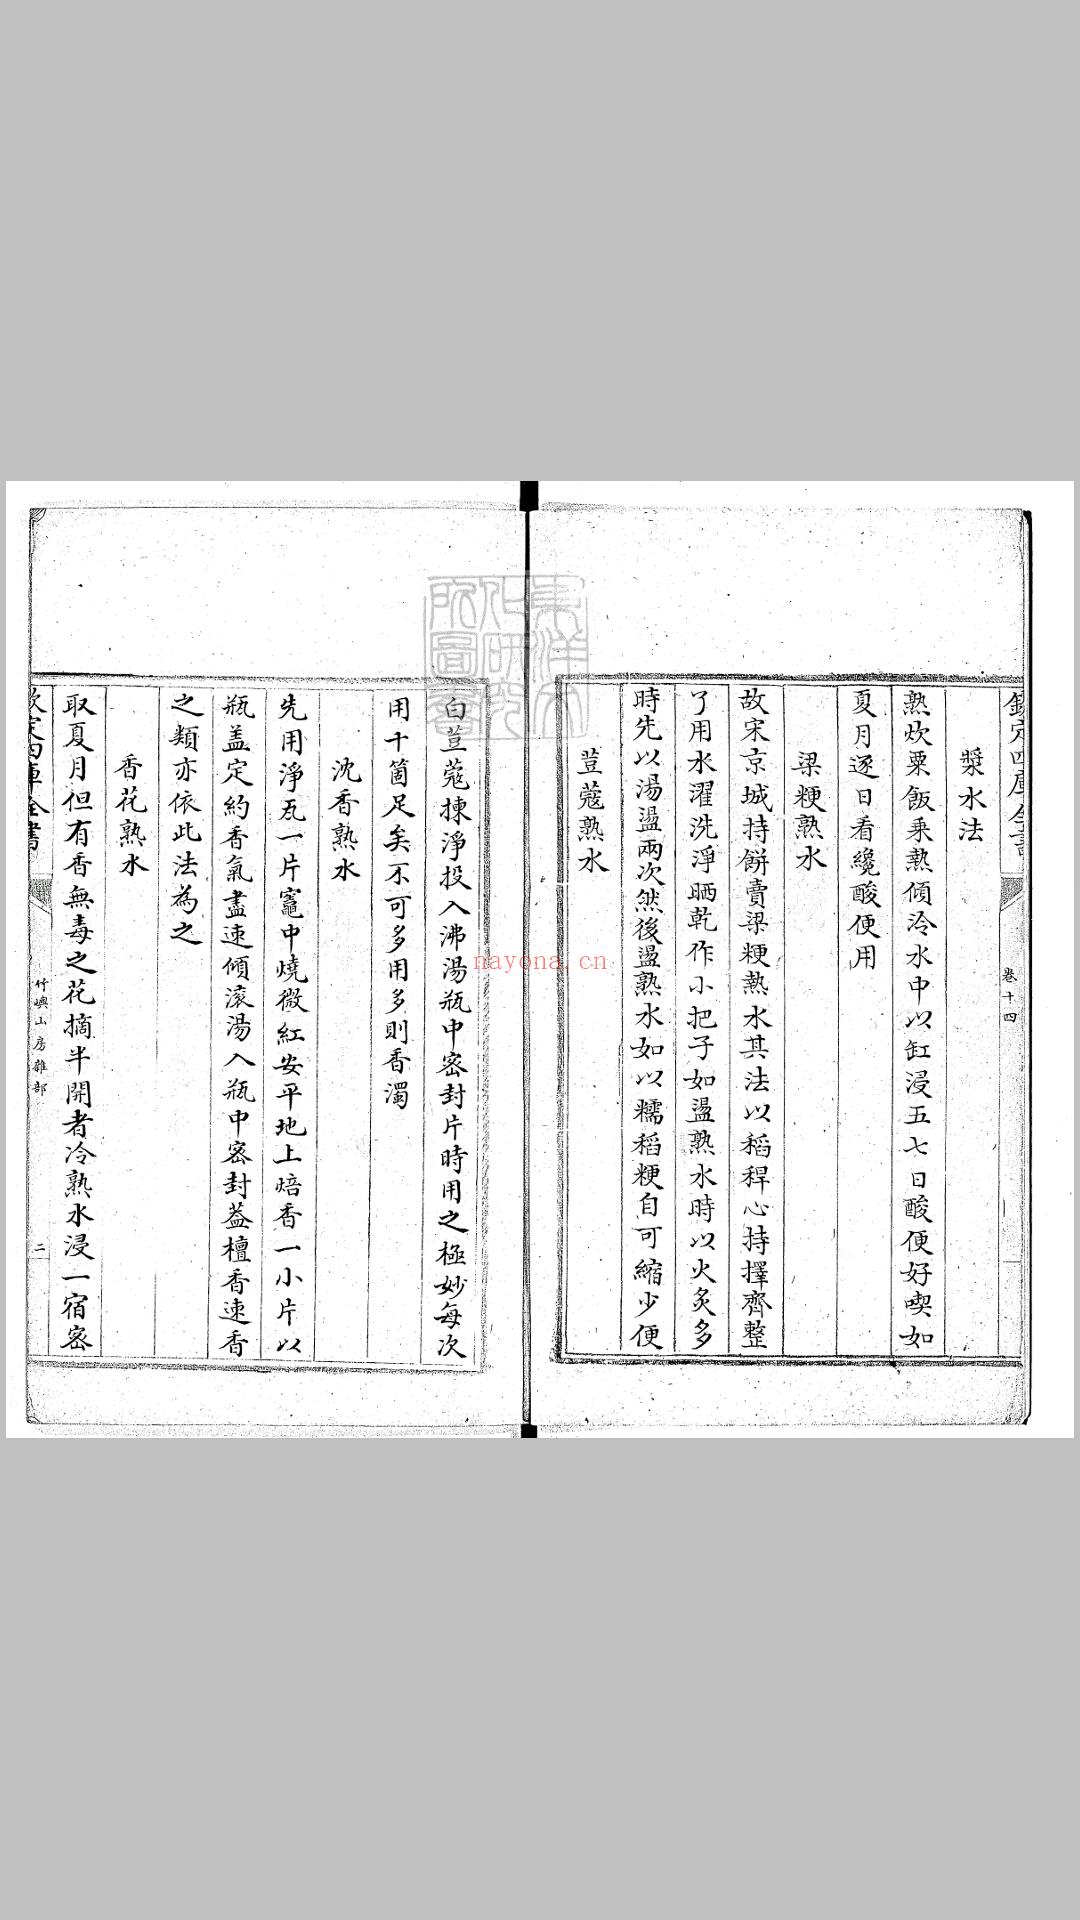 欽定四庫全書
卷十四
漿水法
熟炊粟飯乗熱傾冷水中以缸浸五七日酸便好喫如
夏月逐日看纔酸便用
梁粳熟水
故宋京城持餅賣梁粳熱水其法以稻稈心持擇齊整
了用水濯洗淨晒乾作小把子如盪熟水時以火炙多
時先以湯盪兩次然後盪熟水如以糯稻粳自可縮少便
荳蔻熟水
白荳蔻揀淨投入沸湯瓶中密封片時用之極妙每次
用十箇足矣不可多用多則香濁
沈香熟水
先用淨瓦一片竈中燒微紅安平地上焙香一小片以
瓶盖定約香氣盡速傾滚湯入瓶中密封葢檀香速香
之類亦依此法為之
香花熟水
取夏月但有香無毒之花摘半開者冷熟水浸一宿密
欽定四庫全書
竹嶼山房雜部
二
東洋文化研究所圖書
nayona.cn